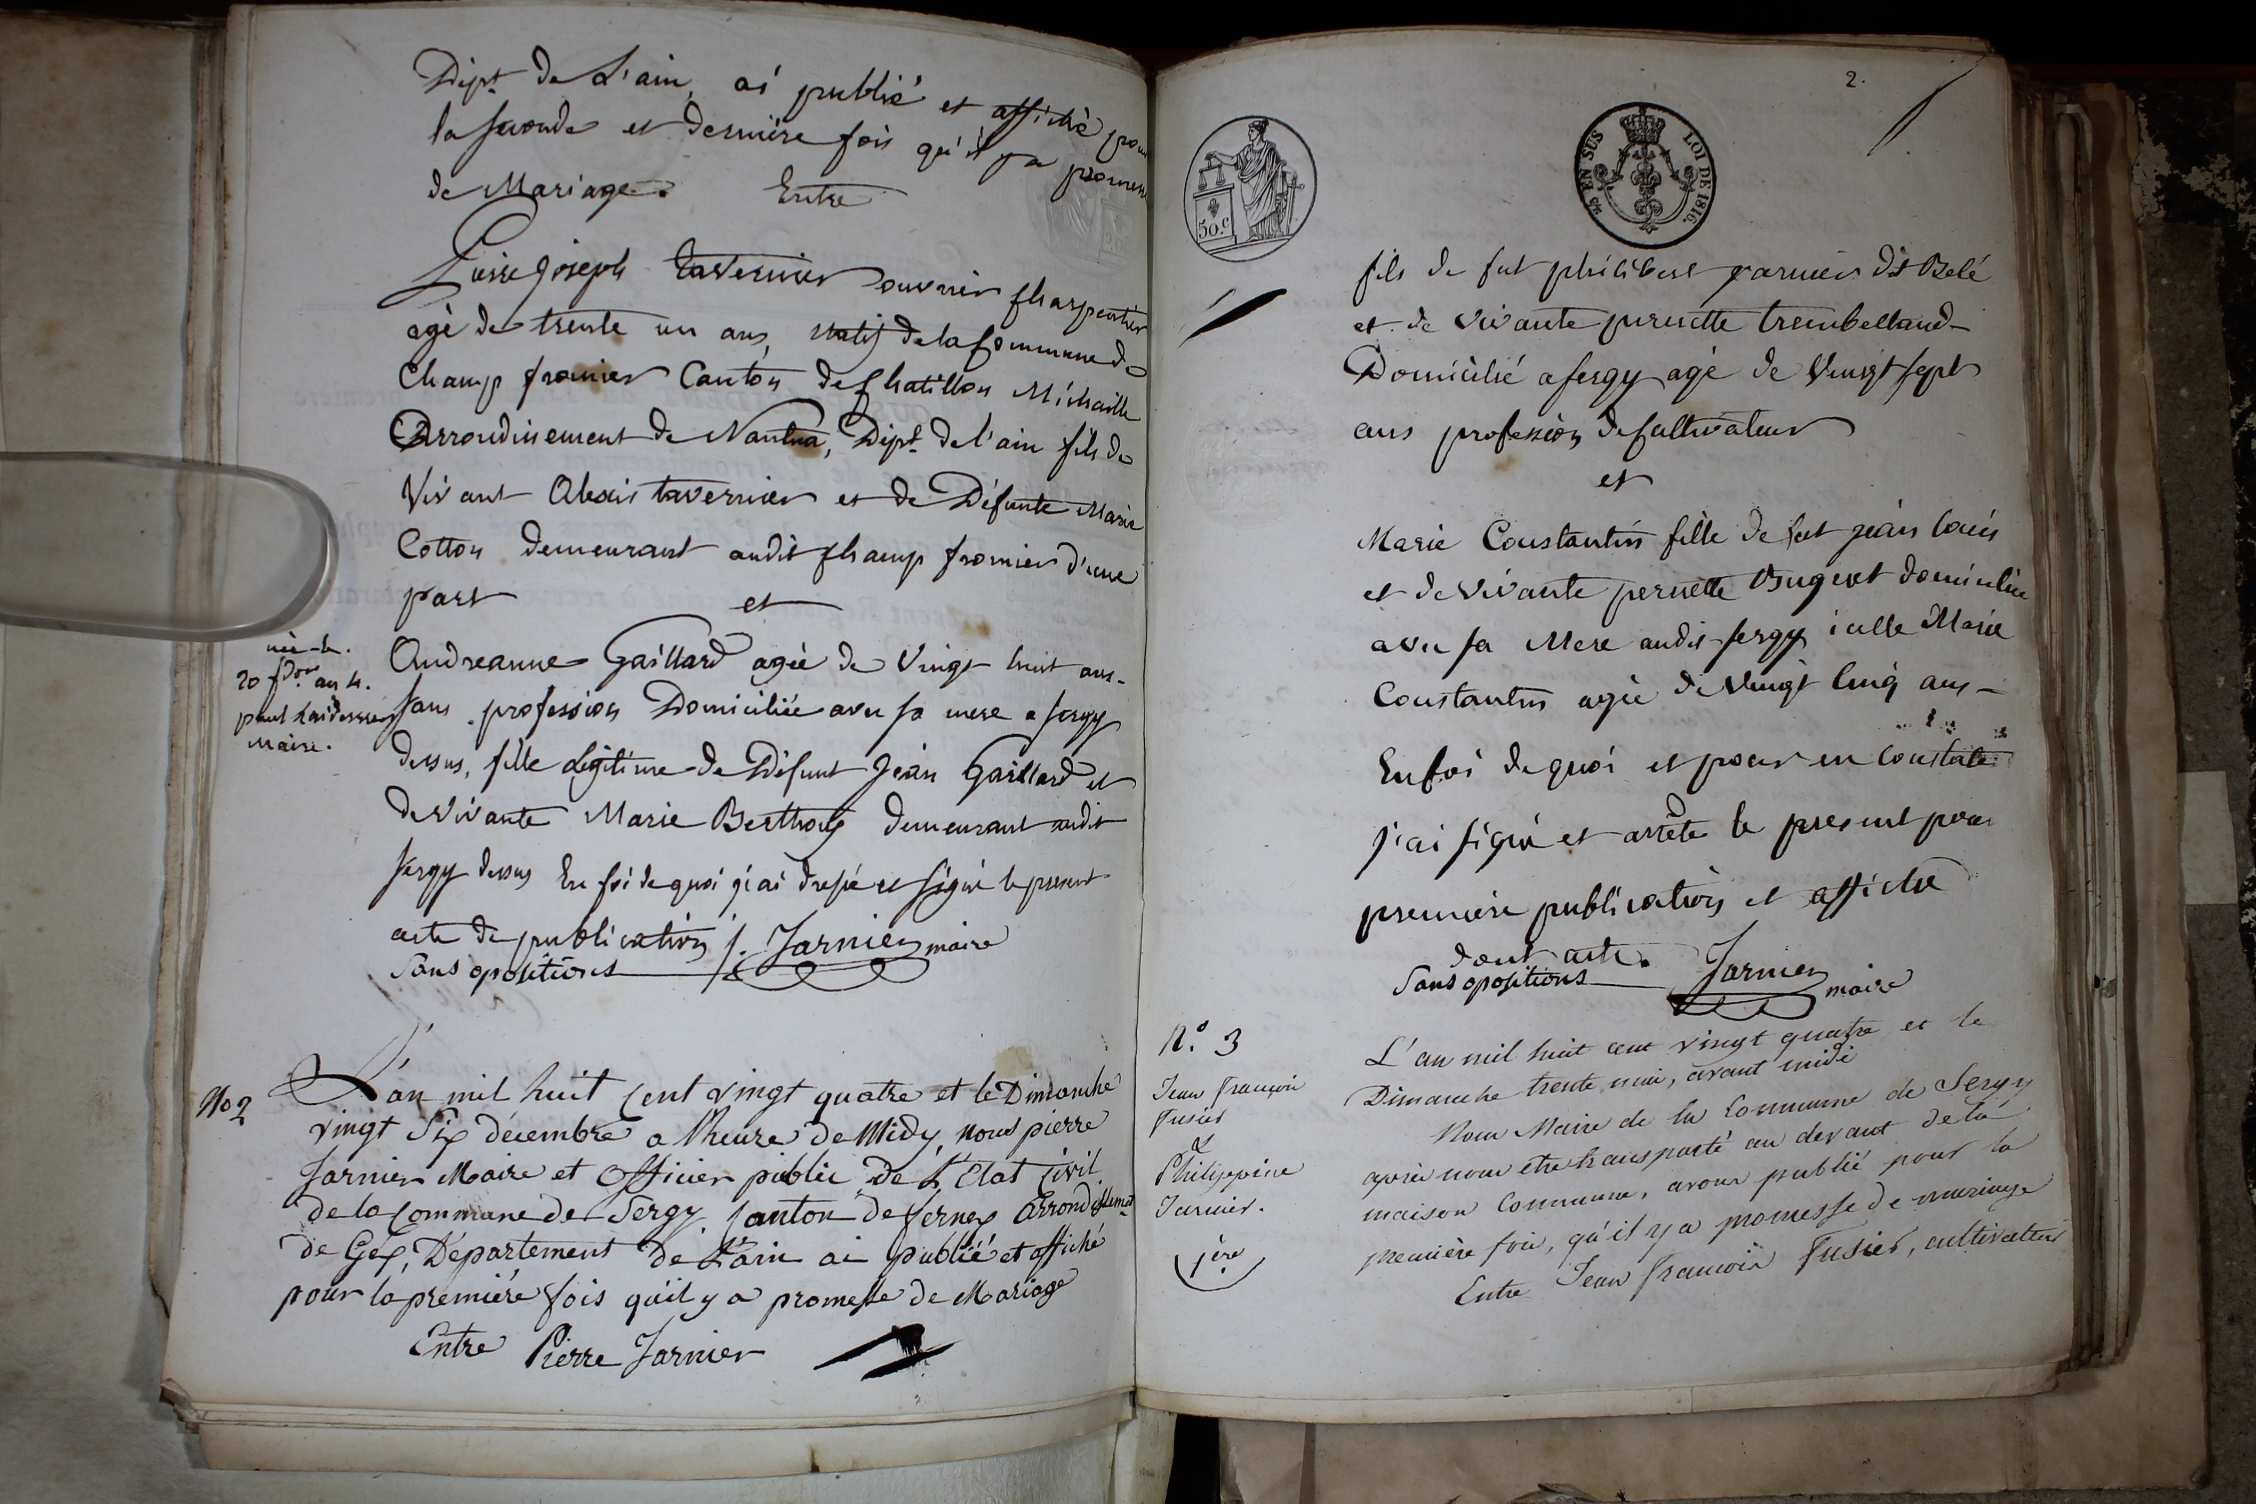 Dépt de L'ain, ai publié et affiché pour
la seconde et dernière fois qu'il y a promesse
de Mariage. Entre
Pierre Joseph tavernier ouvrier Charpentier
agé de trente un ans, Natif de la Commune de
Champ fromier Canton de Chatillon Michaille
Arrondissement de Nantua, Dépt de l'ain fils de
Vivant Alexis tavernier et de Défunte Marie
Cotton demeurant audit Champ fromier d'une
part et
née le.
20 fdor an 4.
maire.
Andreanne Gaillard agée de Vingt huit ans
sans profession Domiciliée avec sa mere a Sergy
dessus, fille Légitime de Défunt Jean Gaillard et
de Vivante Marie Berthoux demeurant audit
Sergy dessus En foi de quoi j'ai dressé et signé le present
acte de publication J. Jarnier maire
Sans opositions
No 2
L'an mil huit Cent vingt quatre et le Dimanche
vingt Six décembre a l'heure de Midy, Nous pierre
Jarnier Maire et Officier public de L'Etat Civil
de la Commune de Sergy, Canton de ferney Arrondissement
de Gex, Département de L'ain ai publié et affiché
pour la première fois qu'il y a promesse de Mariage
Entre Pierre Jarnier
2.
30.c
EN SUS
LOI DE 1816.
fils de fut philibert jarnier dit Belé
et de Vivante pernette trembelland
Domicilié a Sergy agé de Vingt sept
ans profession de Cultivateur
et
Marie Constantin fille de fut jean louis
et de Vivante pernette Bugnet domiciliée
avec sa Mere audit Sergy icelle Marie
Constantin agée de Vingt Cinq ans
En foi de quoi et pour en Constate
j'ai signé et arrété le present pour
première publication et affiche
dont acte.
Sans opositions Jarnier maire
No. 3
Jean François
Fusier
&
Philippine
Jarnier.
1ère
L'an mil huit cent vingt quatre et le
Dimanche trente mai, avant midi
Nous Maire de la Commune de Sergy
après nous etre transporté au devant de la
maison Commune, avons publié pour la
première fois, qu'il y a promesse de mariage
Entre Jean François Fusier, cultivateur